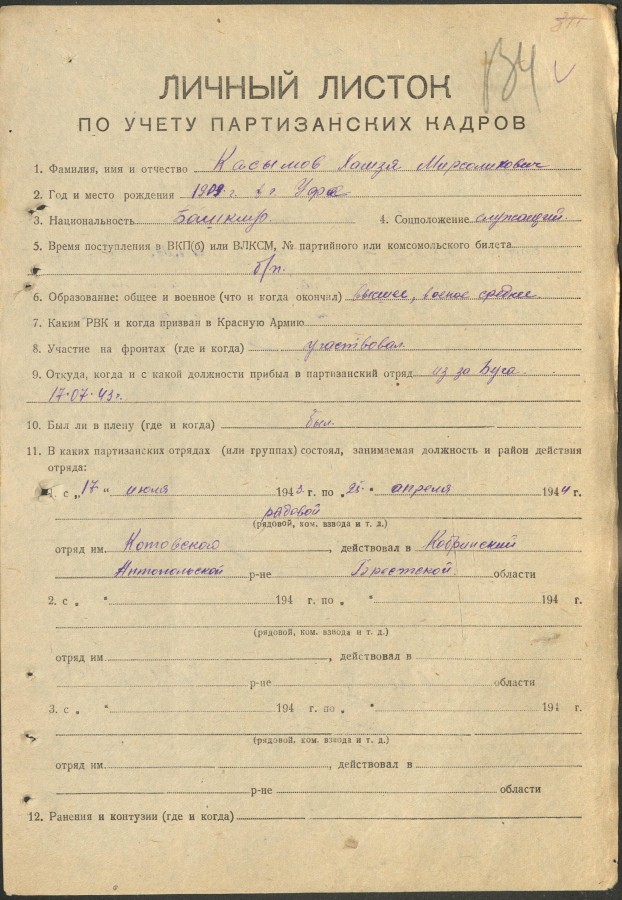 ЛИЧНЫЙ ЛИСТОК
ПО УЧЕТУ ПАРТИЗАНСКИХ КАДРОВ
1. Фамилия, имя и отчество Касымов Хамзя
2. Год и место рождения 1909 г. в г. Уфе
3. Национальность Башкир 4. Соцположение служащий
5. Время поступления в ВКП(б) или ВЛКСМ, № партийного или комсомольского билета
б/п.
6. Образование: общее и военное (что и когда окончил) высшее, военое среднее
7. Каким РВК и когда призван в Красную Армию
8. Участие на фронтах (где и когда) участвовал.
9. Откуда, когда и с какой должности прибыл в партизанский отряд из за Буга
17.07.43 г.
10. Был ли в плену (где и когда) был.
11. В каких партизанских отрядах (или группах) состоял, занимаемая должность и район действия
отряда:
1. с „17" июля 1943 г. по „25" апреля 1944 г.
рядовой
(рядовой, ком. взвода и т. д.)
отряд им Котовского, действовал в Кобринский
Антопольской р-не Брестской области
2. с „ " 194 г. по „ " 194 г.
(рядовой, ком. взвода и т. д.)
отряд им , действовал в
р-не области
3. с „ " 194 г. по „ " 194 г.
(рядовой, ком. взвода и т. д.)
отряд им , действовал в
р-не области
12. Ранения и контузии (где и когда)